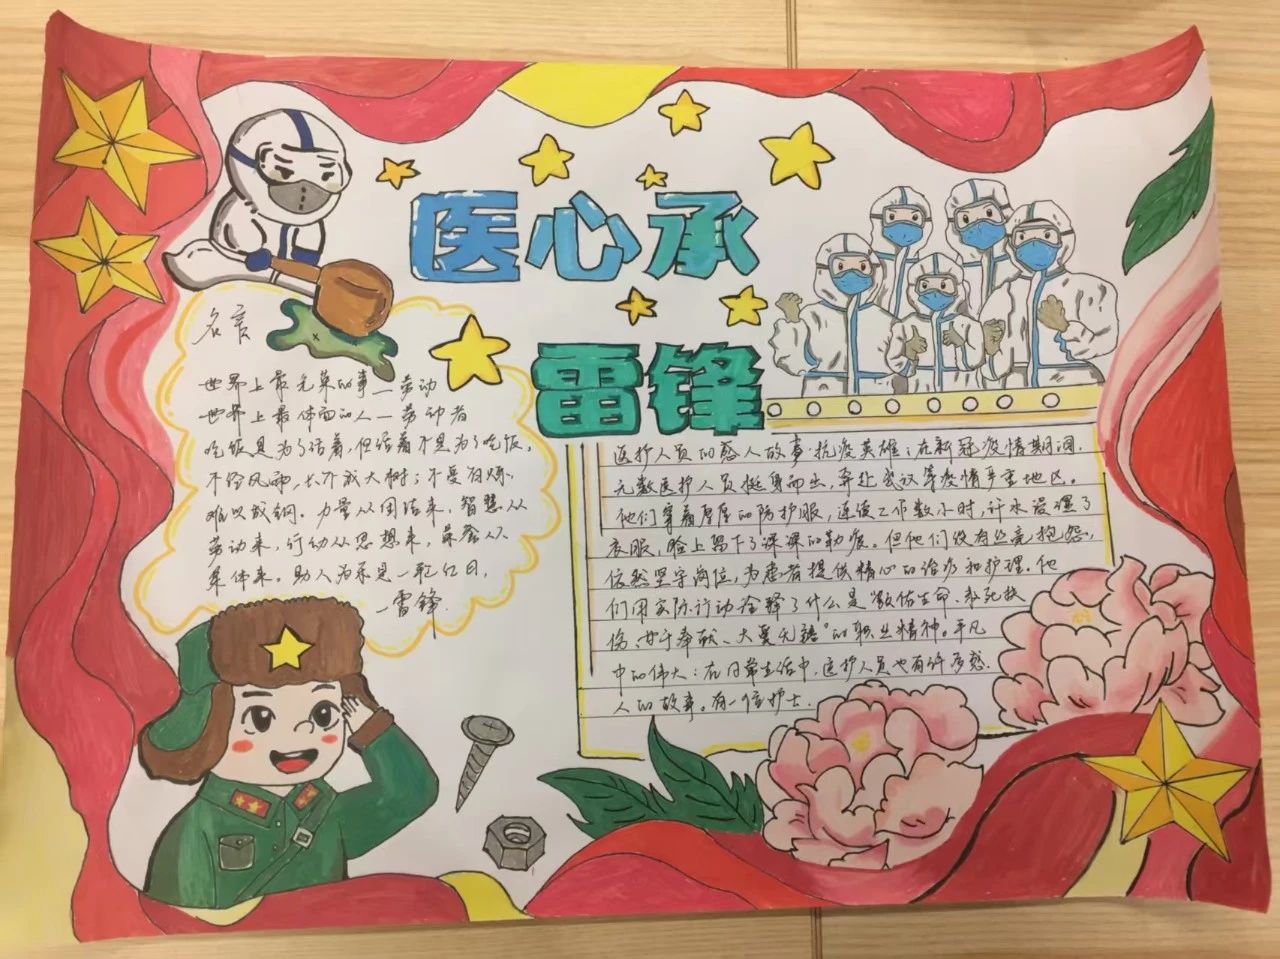 医心承
雷锋
名言
世界上最光荣的事—劳动
世界上最体面的人—劳动者
吃饭是为了活着,但活着不是为了吃饭。
不经风雨,长不成大树;不受百炼,
难以成钢。力量从团结来,智慧从
劳动来,行动从思想来,荣誉从
集体来。助人为乐是一轮红日,
—雷锋.
医护人员的感人故事·抗疫英雄:在新冠疫情期间,
无数医护人员挺身而出,奔赴武汉等疫情严重地区。
他们穿着厚厚的防护服,连续工作数小时,汗水浸湿了
衣服,脸上留下了深深的勒痕。但他们没有丝毫抱怨,
依然坚守岗位,为患者提供精心的治疗和护理。他
们用实际行动诠释了什么是“敬佑生命、救死扶
伤、甘于奉献、大爱无疆”的职业精神。平凡
中的伟大:在日常生活中,医护人员也有许多感
人的故事。有一个位护士.